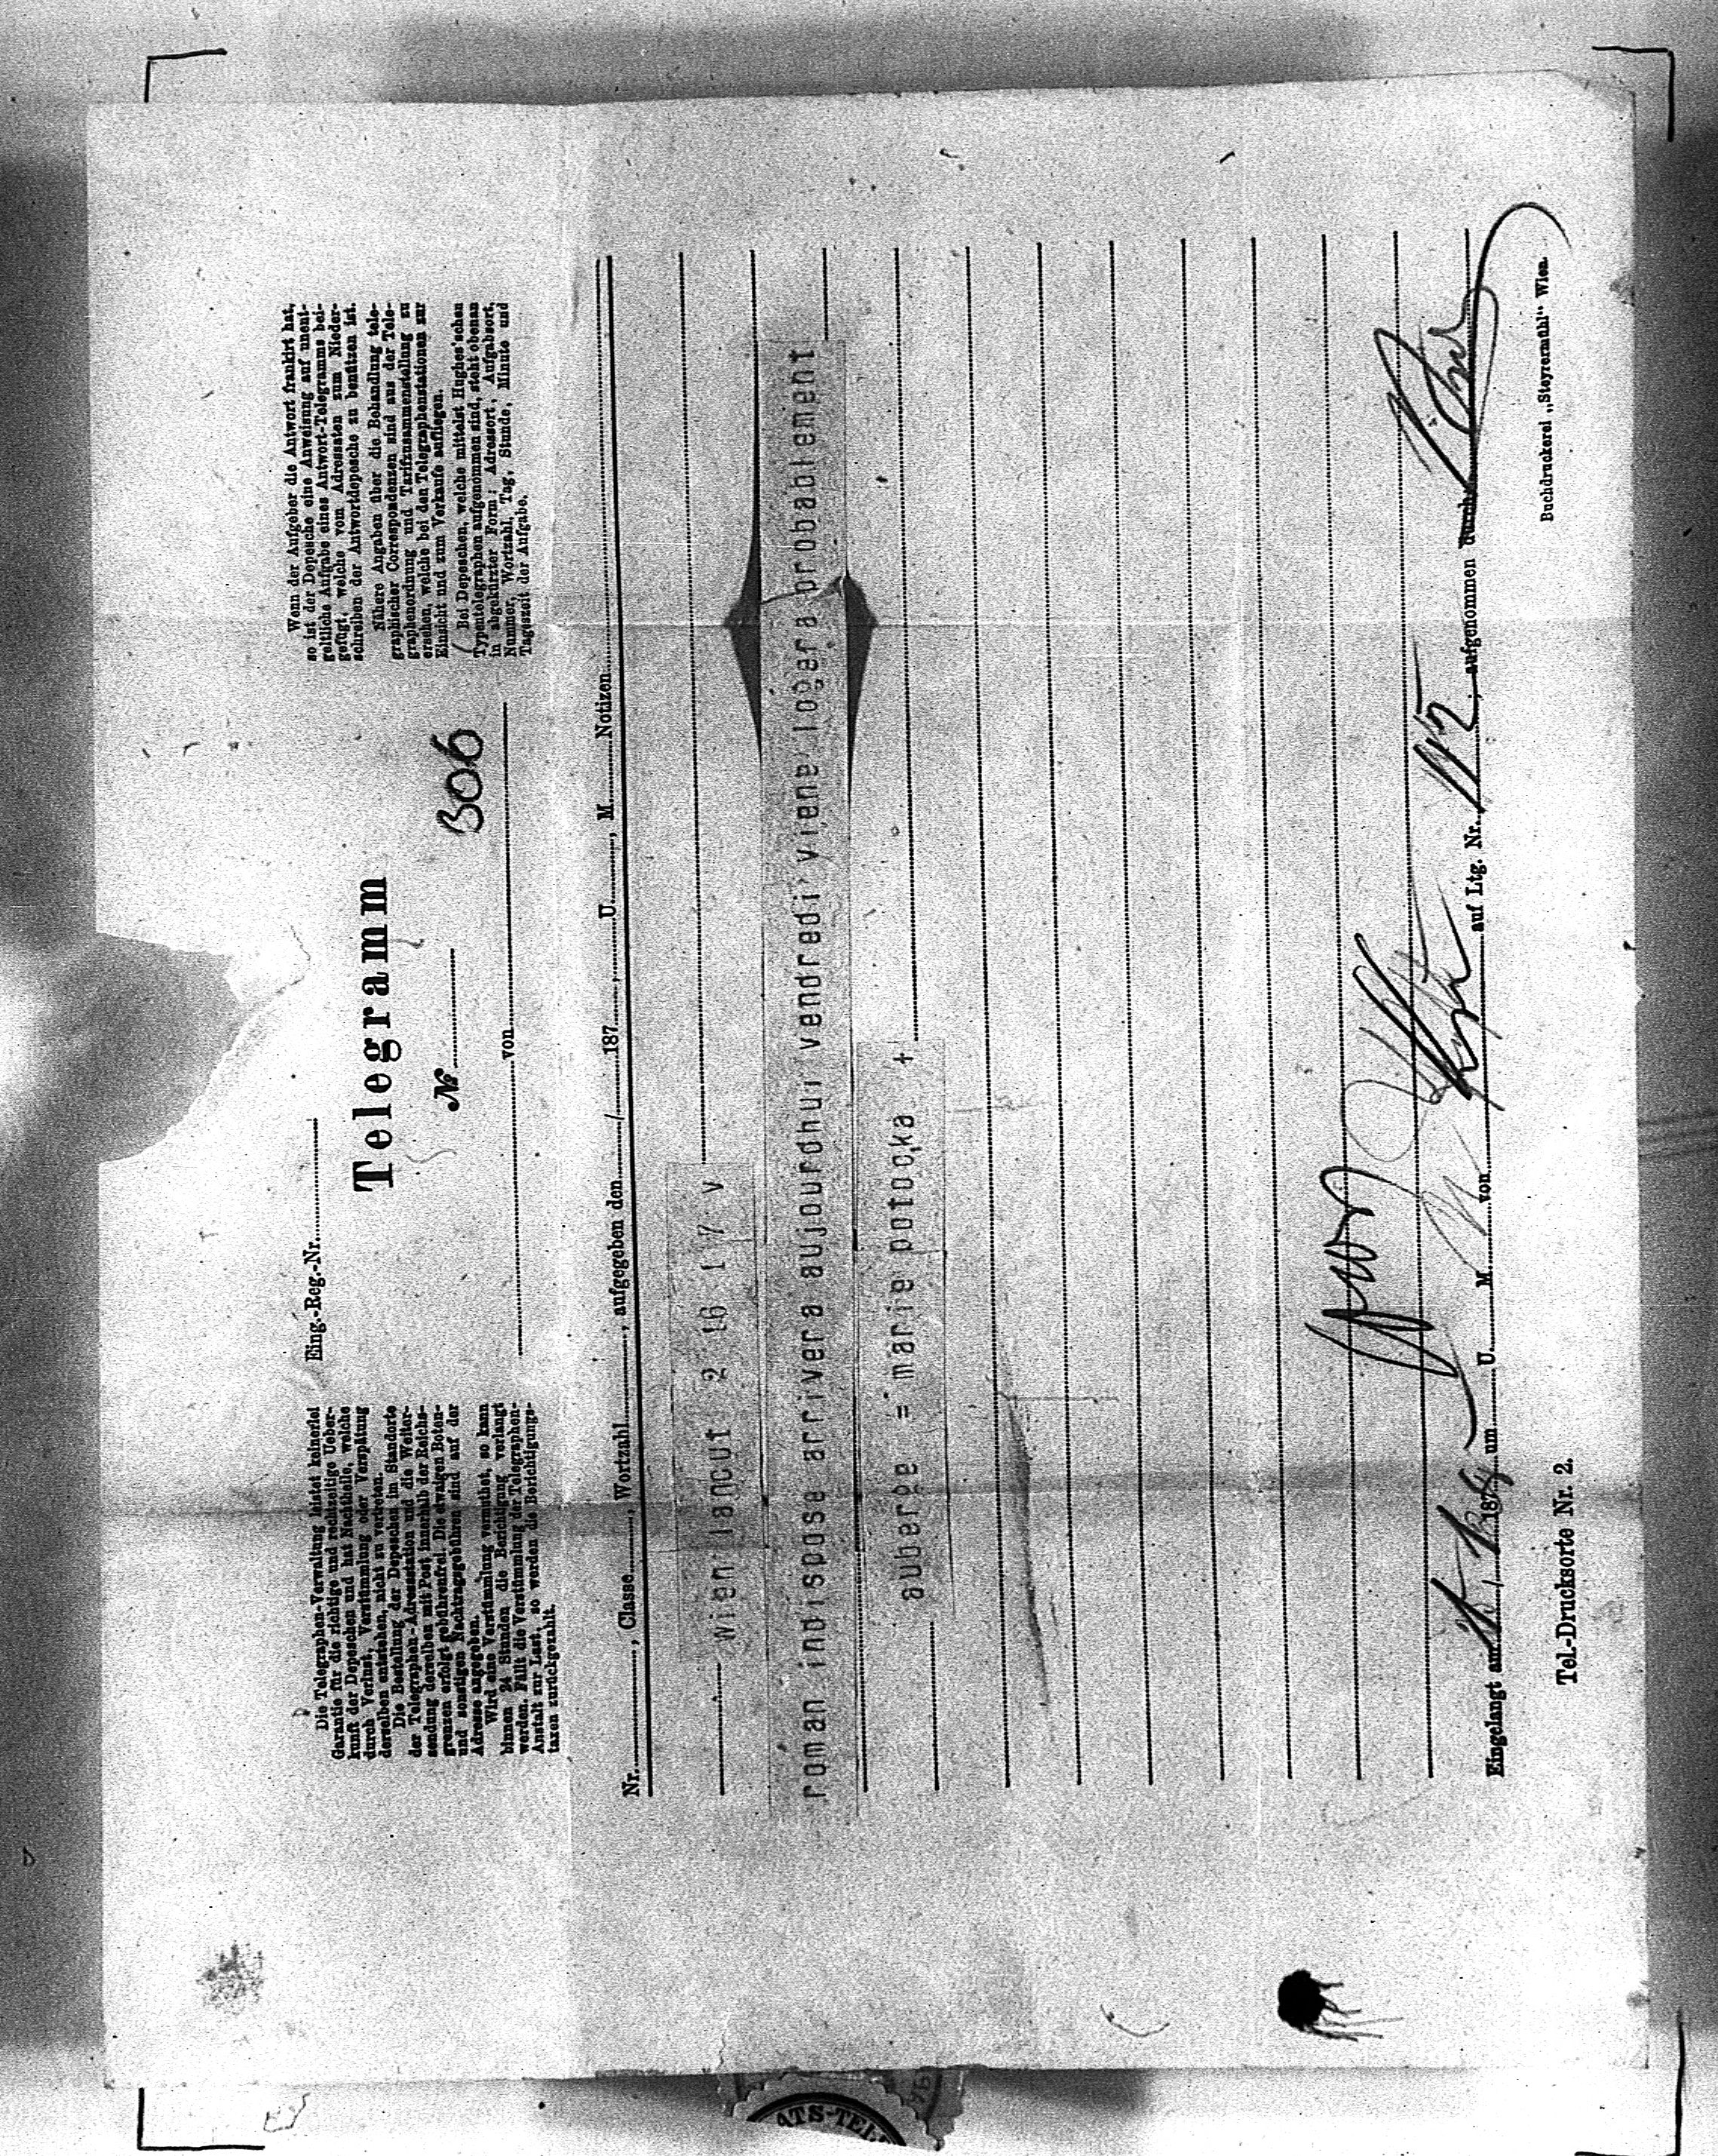 Die Telegraphen-Verwaltung leistet keinerlei
Garantie für die richtige und rechtzeitige Ueber-
kunft der Depeschen und hat Nachtheile, welche
durch Verlust, Verstümmlung oder Verspätung
derselben entstehen, nicht zu vertreten.
Die Bestellung der Depeschen im Standorte
der Telegraphen-Adressstation und die Weiter-
sendung derselben mit Post innerhalb der Reichs-
grenzen erfolgt gebührenfrei. Die etwaigen Boten-
und sonstigen Nachtragsgebühren sind auf der
Adresse angegeben.
Wird eine Verstümmlung vermuthet, so kann
binnen 24 Stunden die Berichtigung verlangt
werden. Fällt die Verstümmlung der Telegraphen-
Anstalt zur Last, so werden die Berichtigungs-
taxen zurückgezahlt.
Eing.-Reg.-Nr.
Telegramm
Nr
306
von
Wenn der Aufgeber die Antwort frankirt hat,
so ist der Depesche eine Anweisung auf unent-
geltliche Aufgabe eines Antwort-Telegramms bei-
gefügt, welche vom Adressaten zum Nieder-
schreiben der Antwortdepesche zu benützen ist.
Nähere Angaben über die Behandlung tele-
graphischer Correspondenzen sind aus der Tele-
graphenordnung und Tarifzusammenstellung zu
ersehen, welche bei den Telegraphenstationen zur
Einsicht und zum Verkaufe aufliegen.
Bei Depeschen, welche mittelst Hughes'schen
Typentelegraphen aufgenommen sind, steht obenan
in abgekürzter Form: Adressort, Aufgabsort,
Nummer, Wortzahl, Tag, Stunde, Minute und
Tageszeit der Aufgabe.
Nr. , Classe , Wortzahl , aufgegeben den / 187 , U. , M Notizen
wien lancut 2 16 1 7 v
roman indispose arrivera aujourdhui vendredi viene logera probablement
auberge = marie potocka +
Eingelangt am / 187 um U. M. von auf Ltg. Nr. 112 , aufgenommen durch
Tel.-Drucksorte Nr. 2.
Buchdruckerei „Steyrermühl“ Wien.
ATS-TEL